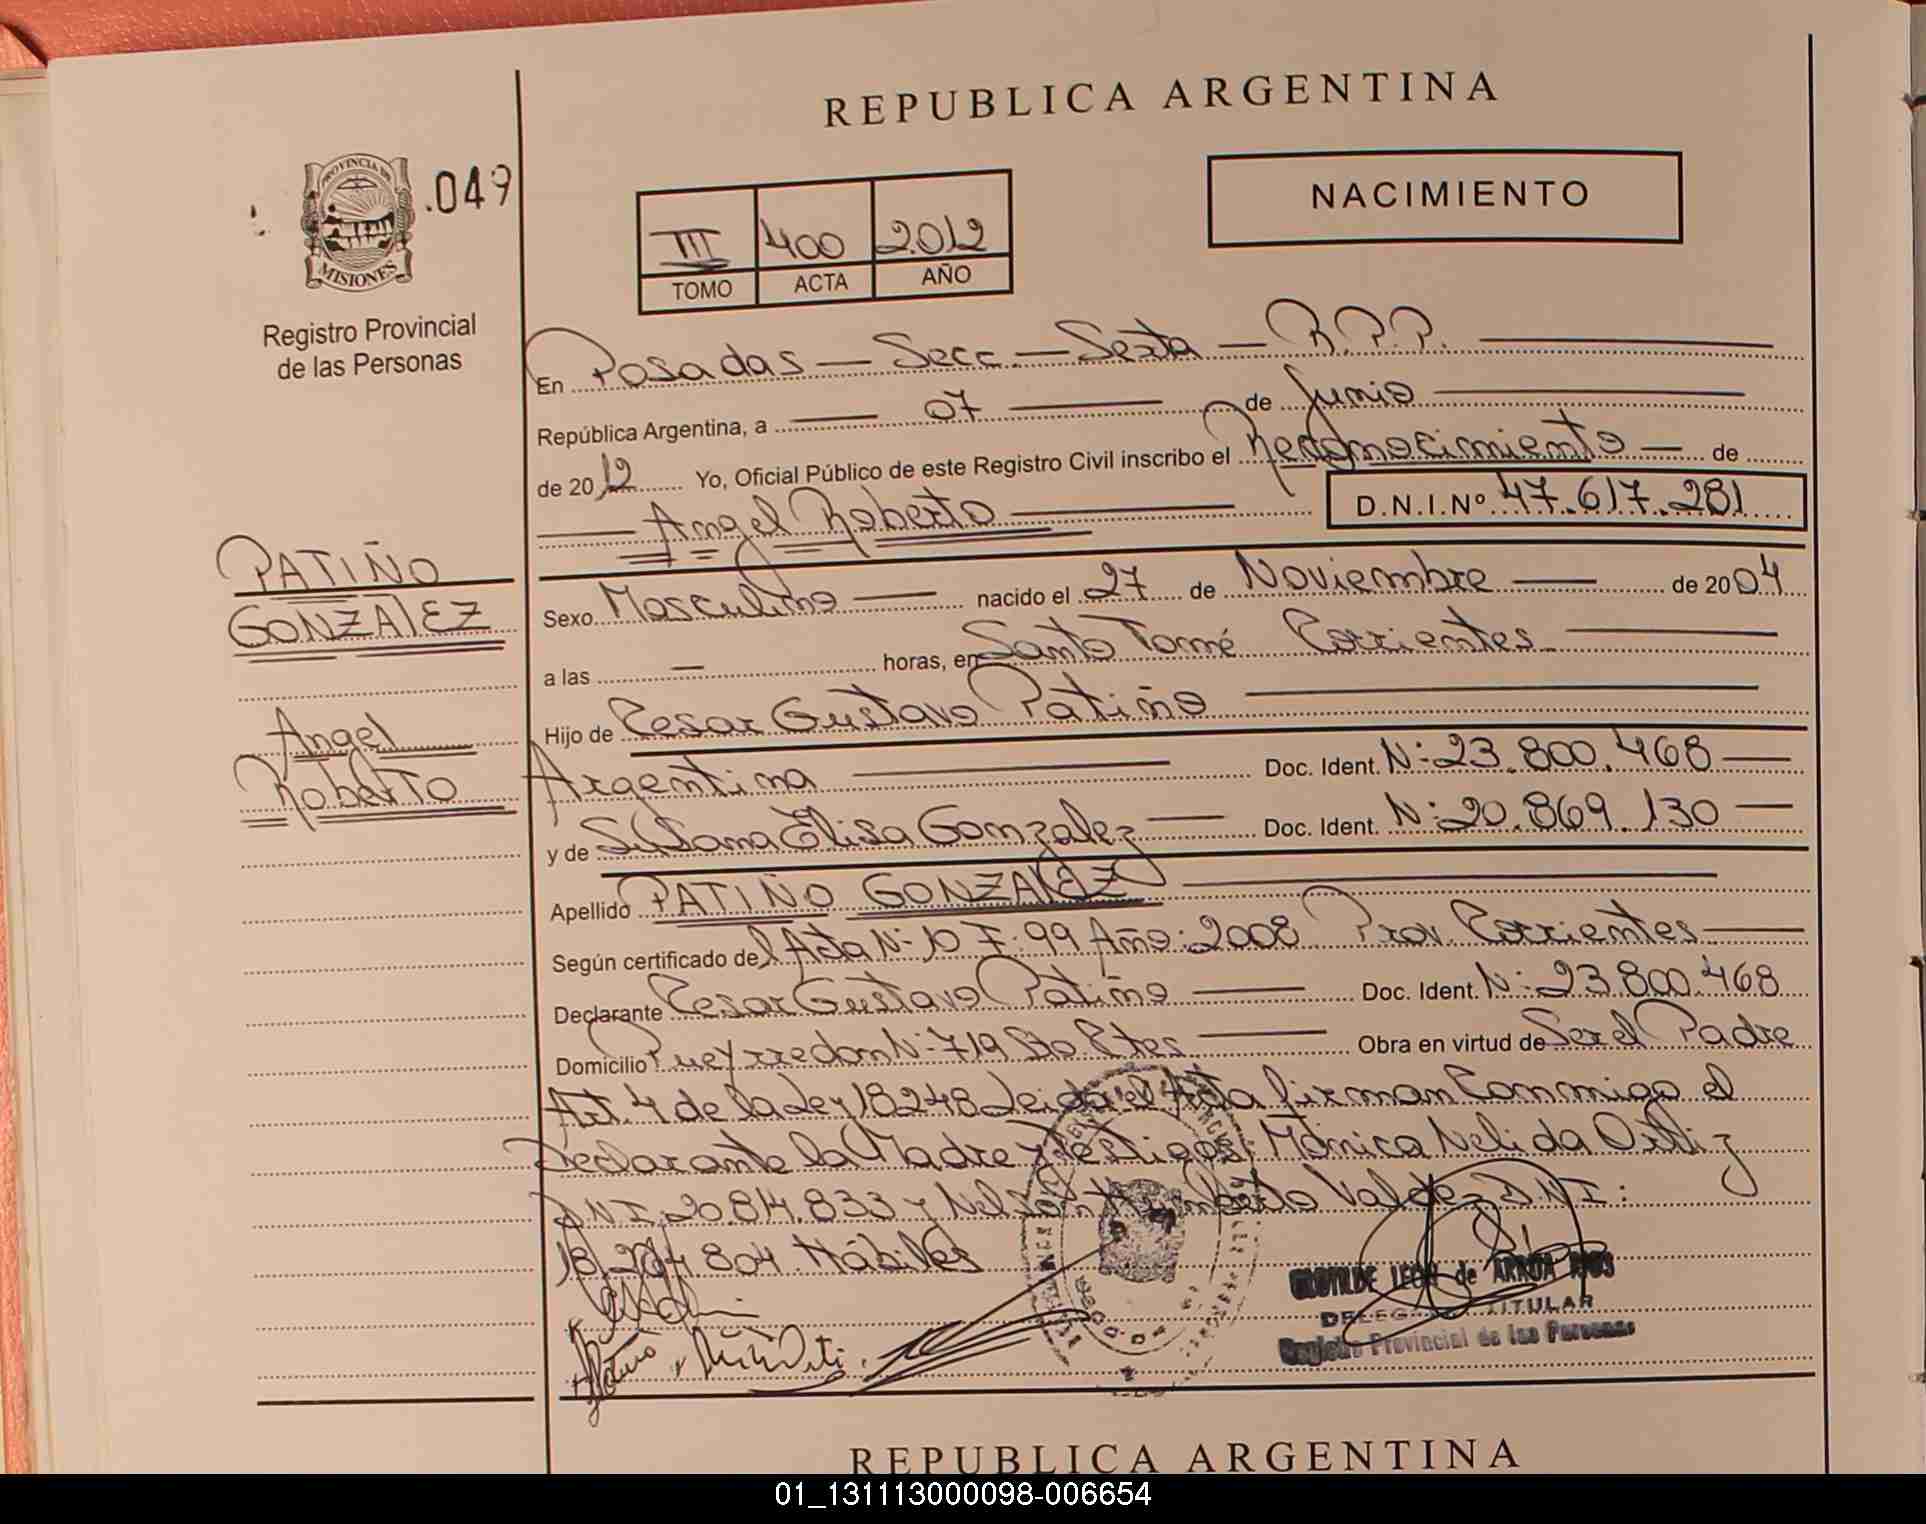 REPUBLICA ARGENTINA
.049
NACIMIENTO
III 400 2012
TOMO ACTA AÑO
PROVINCIA DE
MISIONES
Registro Provincial
de las Personas
En Posadas — Secc. — Sexta — R.P.P.
República Argentina, a 07 de Junio
de 2012 Yo, Oficial Público de este Registro Civil inscribo el Reconocimiento — de
Angel Roberto D.N.I.Nº 47.617.281
PATIÑO
GONZALEZ
Angel
Roberto
Sexo Masculino — nacido el 27 de Noviembre — de 2004
a las — horas, en Santo Tomé Corrientes
Hijo de Cesar Gustavo Patiño
Argentina Doc. Ident. N: 23.800.468
y de Susana Elisa Gonzalez — Doc. Ident. N: 20.869.130
Apellido PATIÑO GONZALEZ
Según certificado del Acta N- 10 F: 99 Año: 2008 Prov. Corrientes
Declarante Cesar Gustavo Patiño — Doc. Ident. N: 23.800.468
Domicilio Pueyrredon N: 719 Obra en virtud de Ser el Padre
Art. 4 de la Ley 18248 Leida el Acta firman Conmigo el
Declarante la Madre y Testigos Mónica Nelida
D.N.I. 20.814.833 y Nelson Humberto Valdez D.N.I:
18.204.804 Hábiles
CLOTILDE LEON de ARRUA RIOS
DELEGADA TITULAR
Registro Provincial de las Personas
REPUBLICA ARGENTINA
01_131113000098-006654